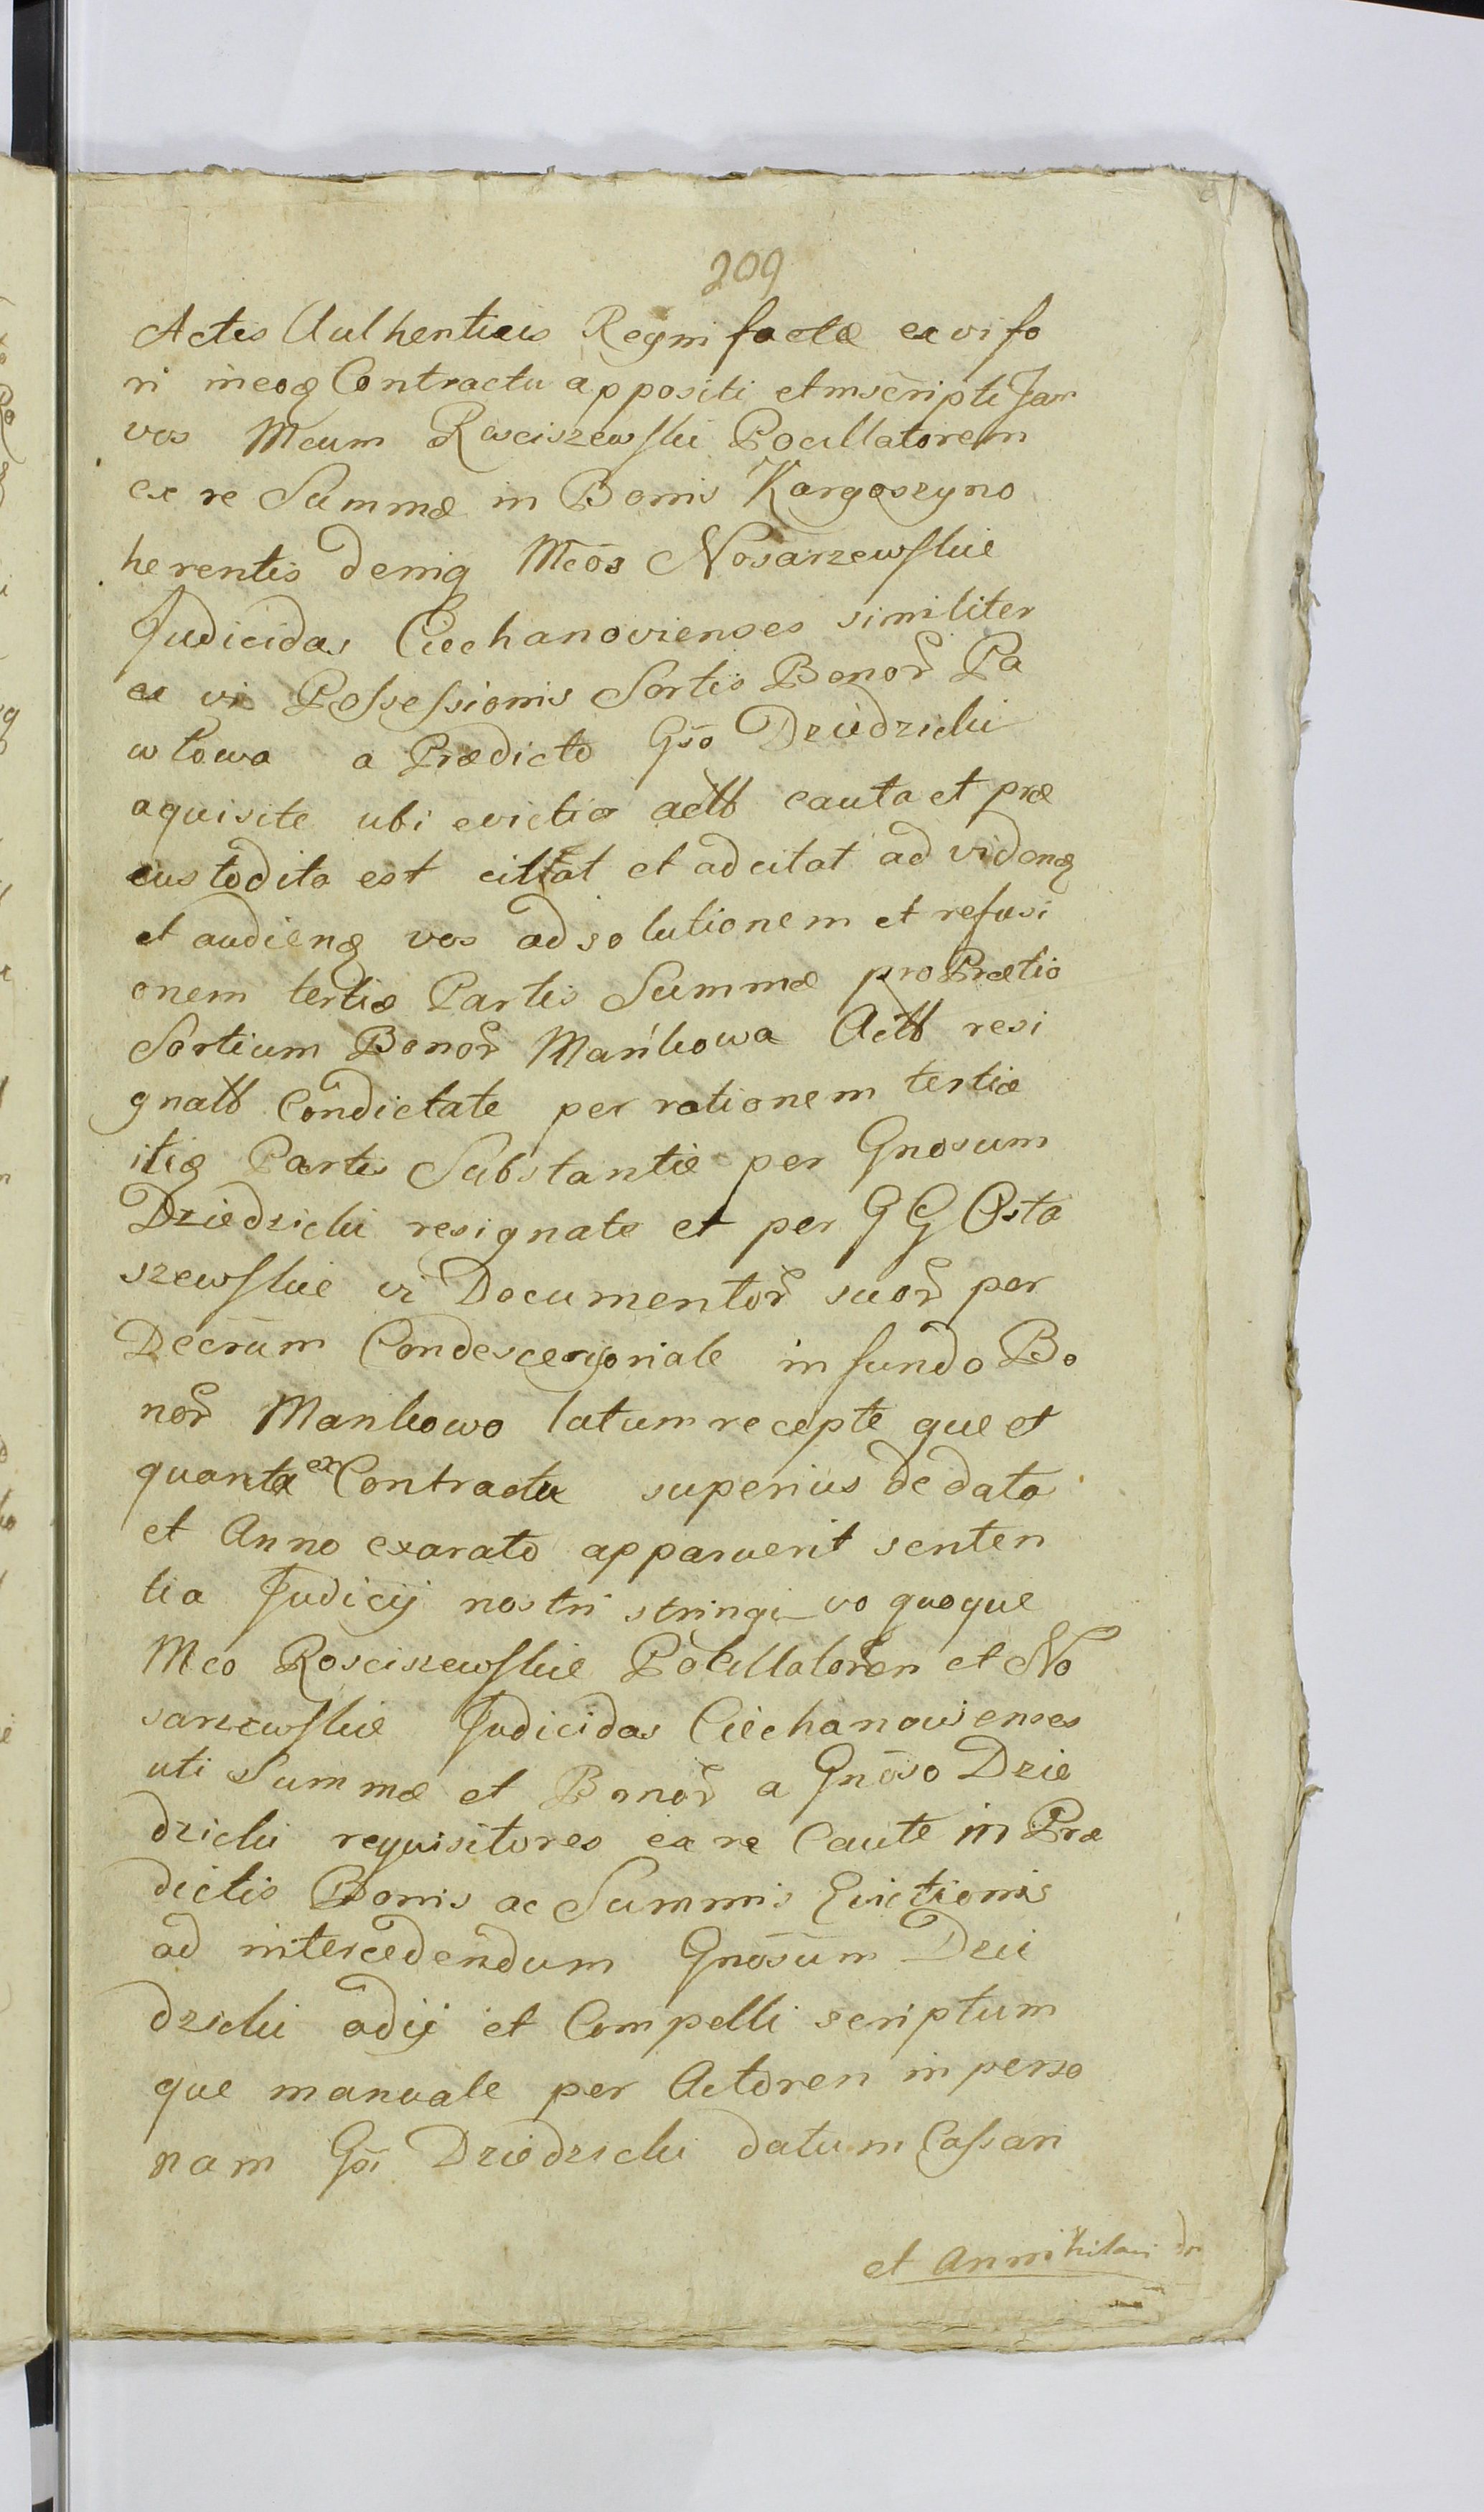 209
Actis Authenticis Regni factæ ex vi fo
ri ineoq Contractu appositi et inscripti Jam
vos Mcum Rosciszewski Pocillatorem
ex re Summæ in Bonis Kargoszyno
herentis deniq Mcos Nosarzewskie
Judicidas Ciechanovienses similiter
ex vi Possessionis Sortis Bonor Pa
włowa a Prædicto Gso Dziedzicki
aquisite ubi evictio actb cauta et præ
custodita est cittat et adcitat ad videnq
et audienq vos ad solutionem et refusi
onem tertiæ Partis Summæ pro Prætio
Sortium Bonor Mańkowa Actb resi
gnatb Condictate per rationem tertiæ
itiq Partis Substantiæ per Gnosum
Dziedzicki resignate et per GG Osta
szewskie vi Documentor suor per
Decrum Condescensoriale in fundo Bo
nor Mankowo latum recepte que et
quanta ex Contractu superius de data
et Anno exarato apparuerit senten
tia Judicij nostri stringi vo quoque
Mco Rosciszewskie Pocillatorem et No
sarzewskie Judicidas Ciechanovienses
uti Summæ et Bonor a Gnoso Dzie
dzicki requisitores ex re Caute in Præ
dictis Bonis ac Summis Evictionis
ad intercedendum Gnosum Dzie
dzicki adij et Compelli scriptum
que manuale per Actoren in perso
nam Gsi Dziedzicki datum Cassari
et Annihilari